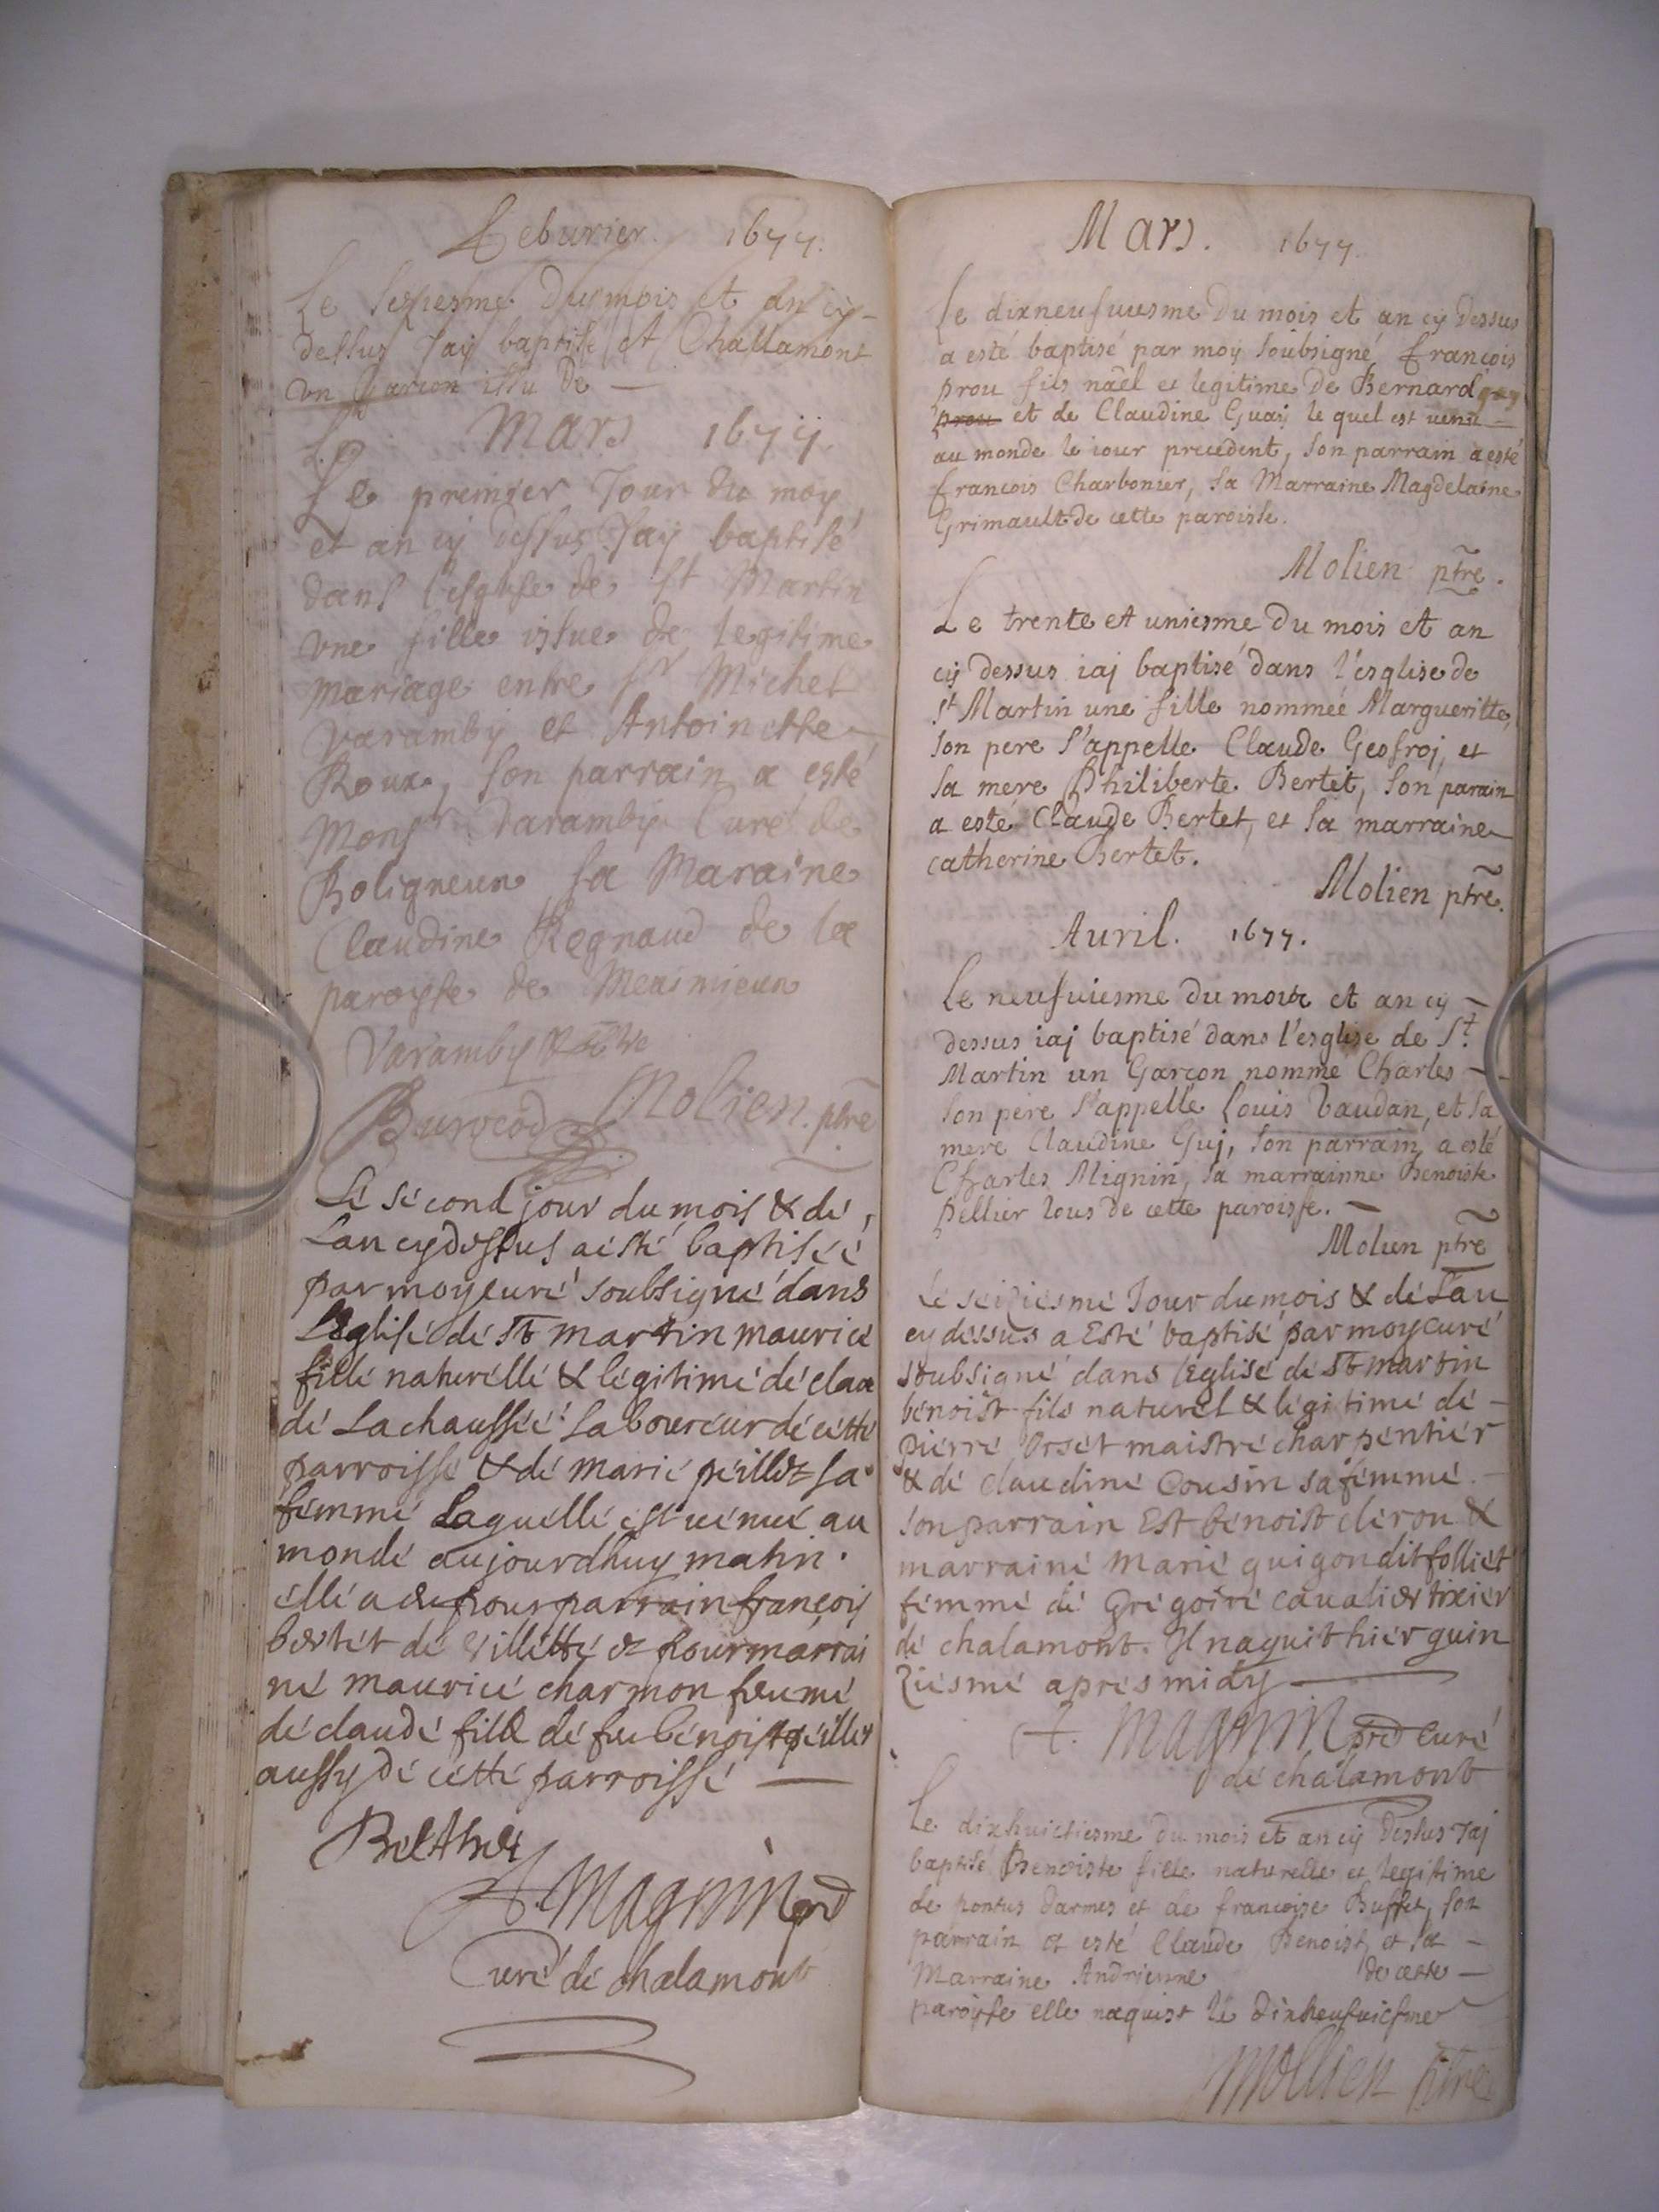 Feburier. 1677.
Le du mois et an cy-
dessus Jay baptisé et Challamont
vn Garcon issu de —
Mars 1677.
Le premier Jour du moy
et an cy dessus Jay baptisé
dans l'esglise de St Martin
vne fille issue de legitime
mariage entre sr Michel
varamby et Antoinette
Roux, son parrain a esté
Monsr Varamby Curé de
Boligneux sa Maraine
Claudine Regnaud de la
paroysse de Meximieux
Varamby
Molien. ptre
Lé second jour du mois & dé
Lan cydessus a esté baptiséé
par moy curé soubsigné dans
L'Eglisé dé St martin mauricé
fillé naturéllé & légitimé dé clau
dé Lachausséé Laboureur dé cétté
parroissé & dé marié péillet sa
fémmé Laquéllé est uénué au
mondé aujourdhuy matin.
éllé a eu pour parrain françois
bertét dé villétté et pour marrai
né mauricé charmon fémmé
dé claudé fillé dé feu bénoist péillet
aussy dé cétté parroissé —
Belthet
A. Magnin prê
Curé dé chalamont
Mars. 1677.
Le dixneufuiesme Du mois et an cy Dessus
a esté baptisé par moy soubsigné francois
prou fils näel et legitime de Bernard
prou et de Claudine Guay le quel est venu —
au monde le iour precedent, son parrain a esté
francois Charbonier, sa Marraine Magdelaine
Grimault de cette paroisse.
Molien ptre.
Le trente et uniesme Du mois et an
cy dessus iaj baptisé dans l'esglise de
St Martin une fille nommée Margueritte,
son pere s'appelle Claude Geofroj, et
sa mere Philiberte Bertet, son parain
a esté Claude Bertet, et sa marraine
catherine Bertet.
Molien ptre.
Auril. 1677.
Le neufuiesme du mois et an cy —
dessus iaj baptisé dans l'esglise de St
Martin un Garcon nomme Charles —
son pere s'appelle Louis Baudan, et sa
mere Claudine Guj, son parrain, a esté
Charles Mignin, sa marrainne Benoiste
Pellier tous de cette paroisse. —
Molien ptre
Lé séiziésmé Jour du mois & dé Lan
cy déssus a Esté baptisé par moy curé
soubsigné dans l'Eglisé dé St martin
bénoist fils naturél & légitimé dé —
piérré Orsét maistré charpéntiér
& dé claudiné Cousin sa fémmé. —
son parrain Est bénoist cléron &
marrainé marié guigon dit folliét
fémmé dé Grégoiré caualiér tixiér
dé chalamont. Il naquit hiér quin
ziésmé aprés midy —
A. Magnin pre Curé
dé chalamont
Le dixhuictiesme du mois et an cy Dessus Jaj
baptisé Benoiste fille naturelle et legitime
de pontus Darmes et de francoise Buffet, son
parrain a esté Claude Benoist, et sa —
Marraine Andrienne de cette —
paroysse elle naquist le dixneufuiesme
Mollien ptre